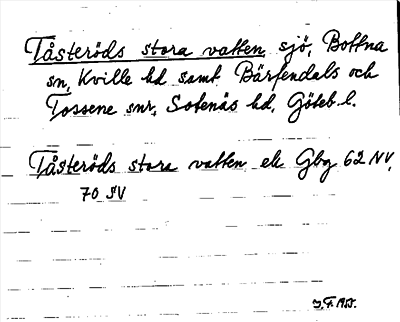 Tåsteröds stora vatten, sjö, Bottna
sn, Kville hd samt Bärfendals och
Tossene snr, Sotenäs hd, Göteb. l.
Tåsteröds stora vatten ek Gbg 62 NV,
70 SV
1955.